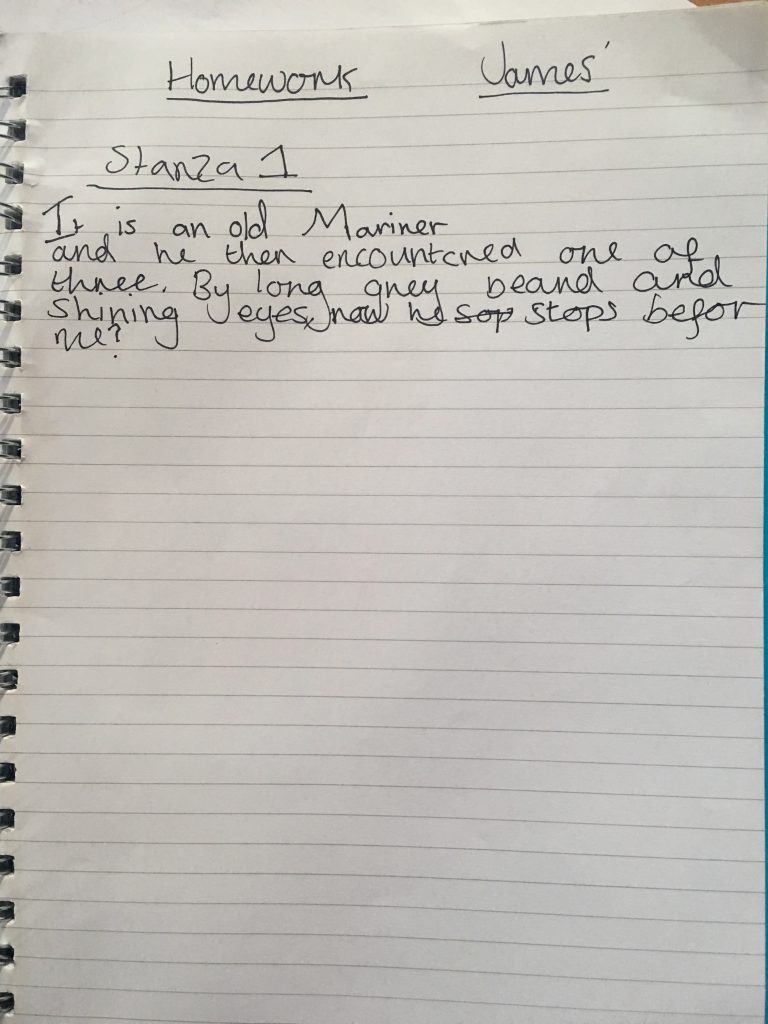 Homework James'
Stanza 1
It is an old Mariner
and he then encountered one of
three. By long grey beard and
Shining eyes, now he sop stops befor
me?